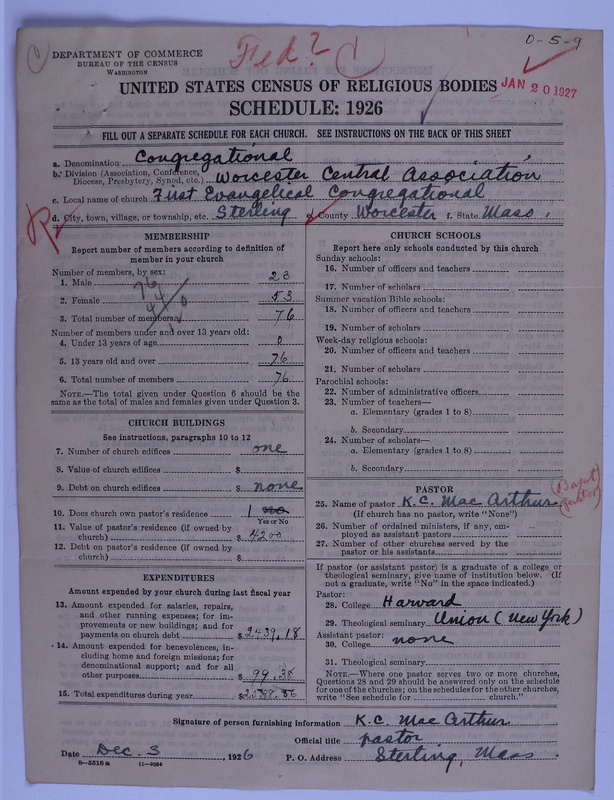 Fed?
D-5-9
DEPARTMENT OF COMMERCE
BUREAU OF THE CENSUS
WASHINGTON
JAN 20 1927
UNITED STATES CENSUS OF RELIGIOUS BODIES
SCHEDULE: 1926
FILL OUT A SEPARATE SCHEDULE FOR EACH CHURCH. SEE INSTRUCTIONS ON THE BACK OF THIS SHEET
a. Denomination Congregational
b. Division (Association, Conference, Diocese, Presbytery, Synod, etc.) Worcester Central Association
c. Local name of church First Evangelical Congregational
d. City, town, village, or township, etc. Sterling e. County Worcester f. State Mass.
MEMBERSHIP
Report number of members according to definition of
member in your church
Number of members, by sex:
1. Male 23
2. Female 53
3. Total number of members 76
Number of members under and over 13 years old:
4. Under 13 years of age 0
5. 13 years old and over 76
6. Total number of members 76
NOTE.—The total given under Question 6 should be the
same as the total of males and females given under Question 3.
CHURCH BUILDINGS
See instructions, paragraphs 10 to 12
7. Number of church edifices one
8. Value of church edifices $
9. Debt on church edifices $ none
10. Does church own pastor's residence 1 no
Yes or No
11. Value of pastor's residence (if owned by
church) $ 4200
12. Debt on pastor's residence (if owned by
church) $
EXPENDITURES
Amount expended by your church during last fiscal year
13. Amount expended for salaries, repairs,
and other running expenses; for im-
provements or new buildings; and for
payments on church debt $ 2439.18
14. Amount expended for benevolences, in-
cluding home and foreign missions; for
denominational support; and for all
other purposes $ 99.38
15. Total expenditures during year $ 2538.56
CHURCH SCHOOLS
Report here only schools conducted by this church
Sunday schools:
16. Number of officers and teachers
17. Number of scholars
Summer vacation Bible schools:
18. Number of officers and teachers
19. Number of scholars
Week-day religious schools:
20. Number of officers and teachers
21. Number of scholars
Parochial schools:
22. Number of administrative officers
23. Number of teachers—
a. Elementary (grades 1 to 8)
b. Secondary
24. Number of scholars—
a. Elementary (grades 1 to 8)
b. Secondary
PASTOR
25. Name of pastor K.C. Mac Arthur
(If church has no pastor, write "None")
26. Number of ordained ministers, if any, em-
ployed as assistant pastors
27. Number of other churches served by the
pastor or his assistants
If pastor (or assistant pastor) is a graduate of a college or
theological seminary, give name of institution below. (If
not a graduate, write "No" in the space indicated.)
Pastor:
28. College Harvard
29. Theological seminary Union (New York)
Assistant pastor:
30. College none
31. Theological seminary
NOTE.—Where one pastor serves two or more churches,
Questions 28 and 29 should be answered only on the schedule
for one of the churches; on the schedules for the other churches,
write "See schedule for church."
Signature of person furnishing information K.C. Mac Arthur
Official title pastor
Date Dec. 3, 1926 P. O. Address Sterling, Mass.
8-5518a 11-9084